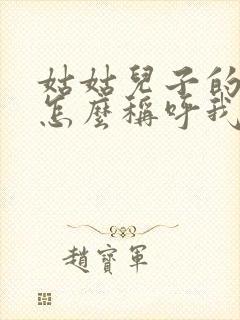 姑姑兒子的
怎麼稱呼我
趙寶軍